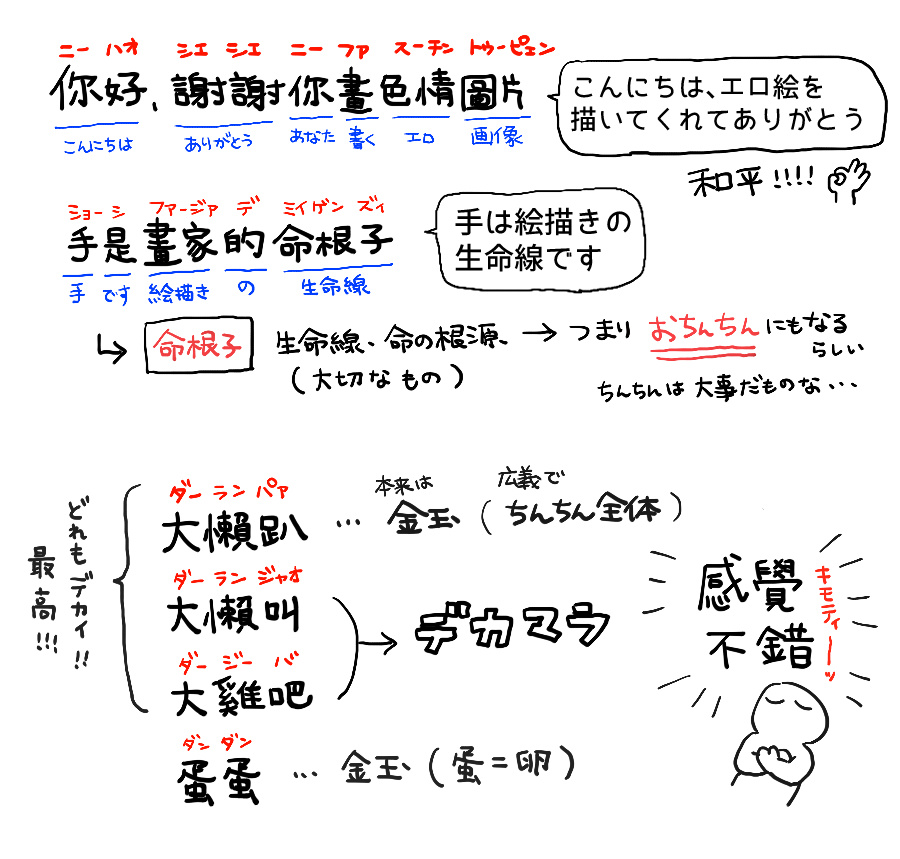 ニー ハオ シエ シエ ニー ファ スーチン トゥーピェン
你好、謝謝你畫色情圖片
こんにちは ありがとう あなた 書く エロ 画像
こんにちは、エロ絵を
描いてくれてありがとう
和平!!!!
ショー シ ファージァ デ ミイゲン ズィ
手是畫家的命根子
手 です 絵描き の 生命線
手は絵描きの
生命線です
命根子 生命線、命の根源、 → つまり おちんちん にもなる
らしい
(大切なもの)
ちんちんは 大事だものな…
どれもデカイ!!
最高!!!
ダー ラン パァ
大懶趴 … 本来は 金玉 (広義で ちんちん全体)
ダー ラン ジャオ
大懶叫
ダー ジー バ
大雞吧
→ デカマラ
ダン ダン
蛋蛋 … 金玉 (蛋=卵)
感覺
不錯
キモティーッ